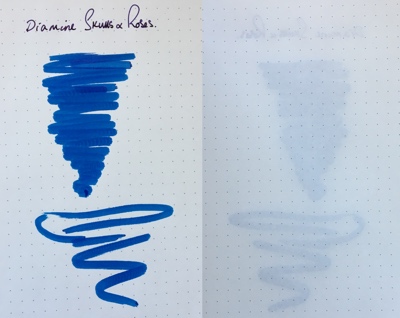 Diamine Skulls & Roses.